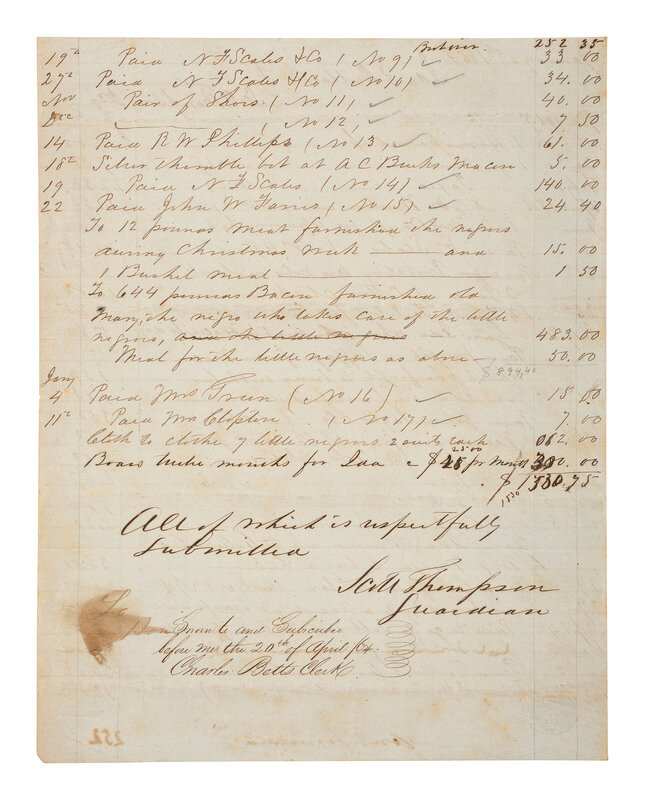 Brot over 252 35
19th Paid N F Scales & Co (No 9) 33 00
27th Paid N F Scales & Co (No 10) 34. 00
Nov Pair of Shoes (No 11) 40. 00
Dec (No 12) 7 50
14 Paid R W Phillips (No 13) 61. 00
18th Silver thimble bot at A C Burks Macon 5. 00
19. Paid N F Scales (No 14) 140 00
22 Paid John W Farris (No 15) 24 40
To 12 pounds meat furnished the negros
during Christmas week and 15. 00
1 Bushel meal 1 50
To 644 pounds Bacon furnished old
Mary, the negro who takes care of the little
negros, and the little negros 483. 00
Meal for the little negros as above 50. 00
$894,40
Jany
4 Paid Mrs (No 16) 15 00
11th Paid Mrs Clopton (No 17) 7. 00
Cloth to clothe 7 little negros 2 suits each 62. 00
Board twelve months for Ida @ $25 00 pr month 300. 00
$ 1530.75
1530
All of which is respectfully
submitted
Scott Thompson
Guardian
Sworn to and Subscribed
before me the 20th of April /64
Charles Betts Clerk
252